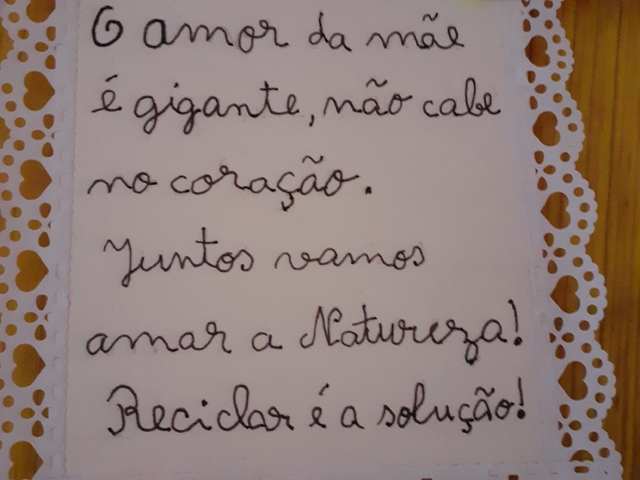 O amor da mãe
é gigante, não cabe
no coração.
Juntos vamos
amar a Natureza!
Reciclar é a solução!